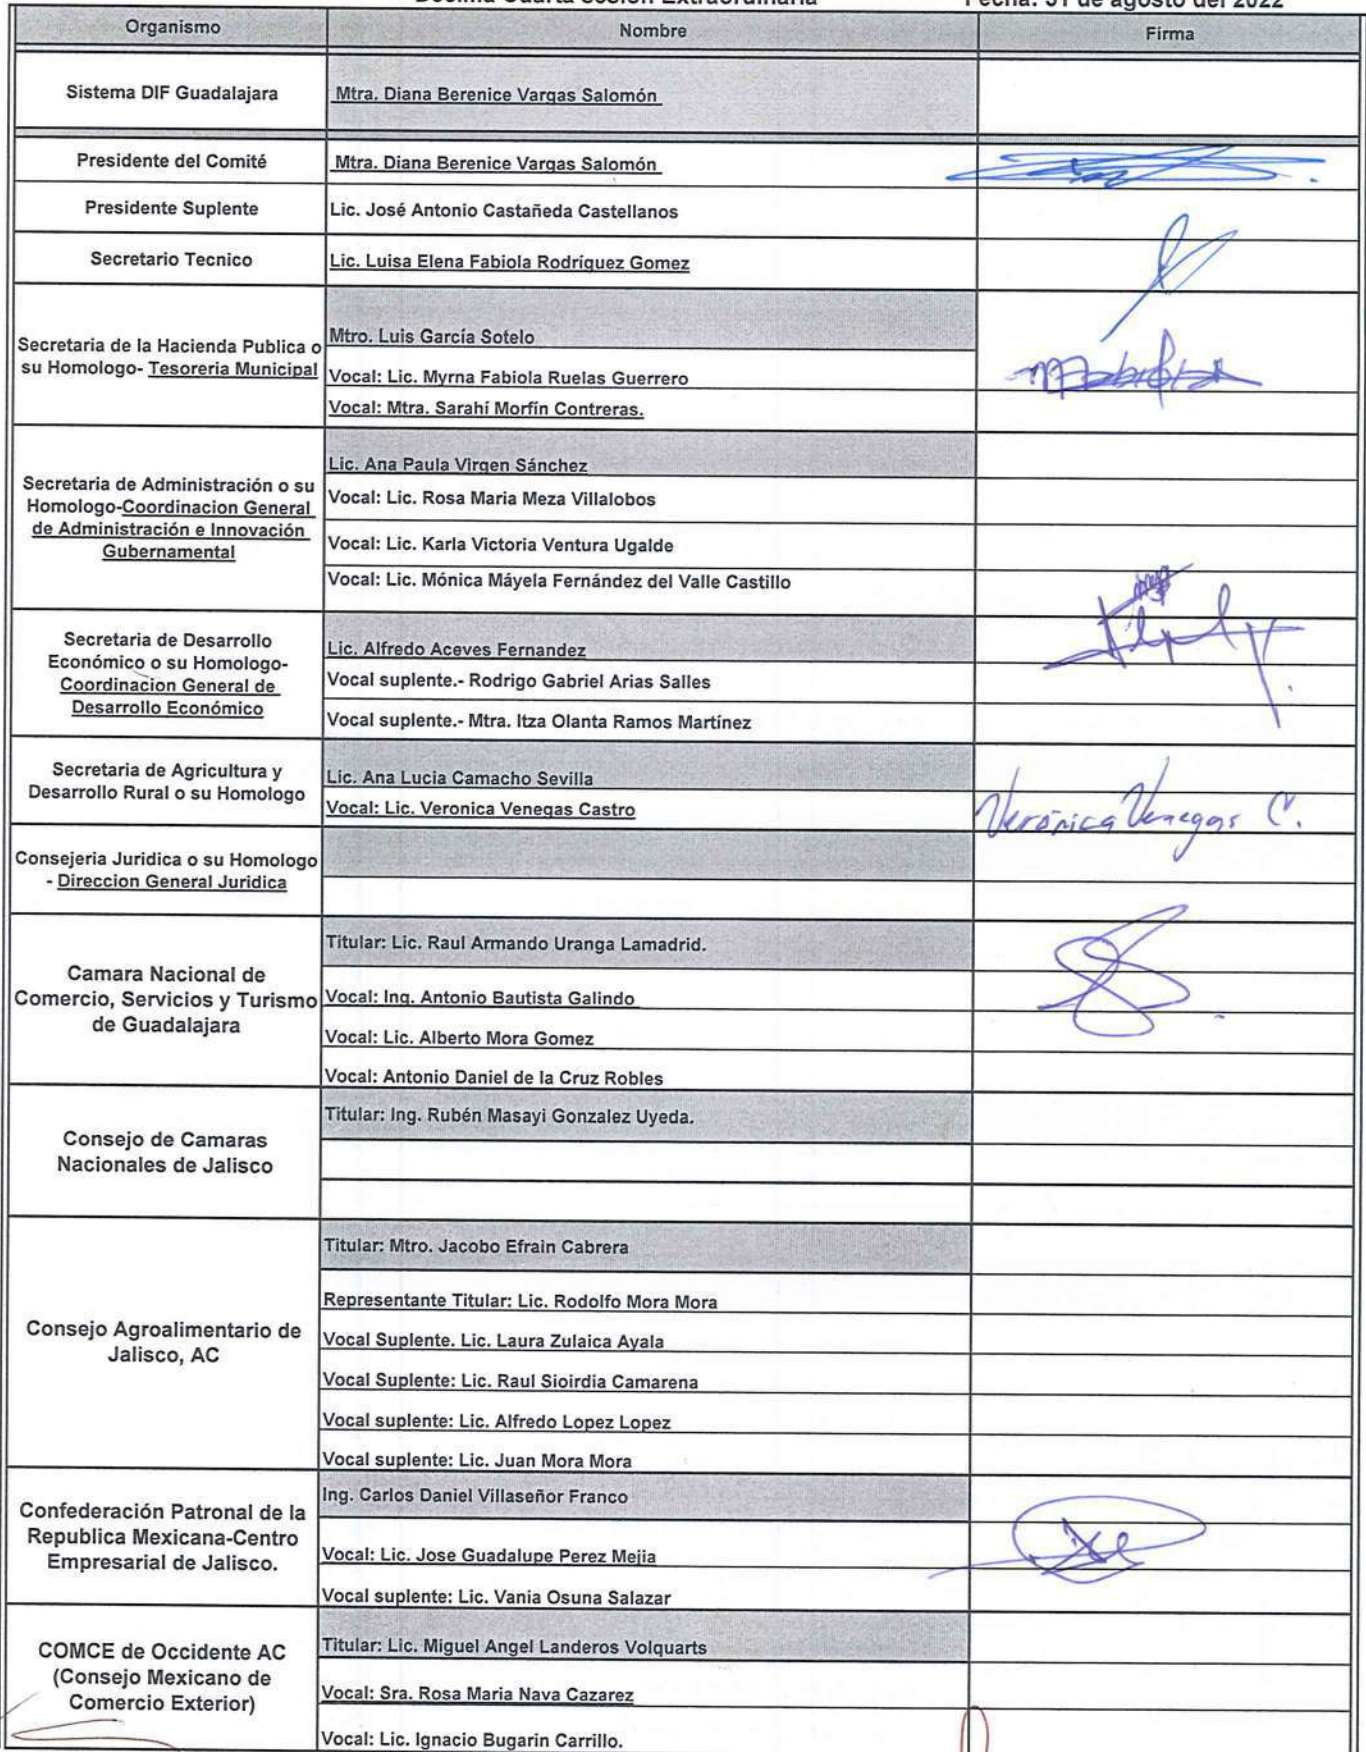 Decima Cuarta sesion Extraordinaria Fecha: 31 de agosto del 2022
Organismo Nombre Firma
Sistema DIF Guadalajara Mtra. Diana Berenice Vargas Salomón
Presidente del Comité Mtra. Diana Berenice Vargas Salomón
Presidente Suplente Lic. José Antonio Castañeda Castellanos
Secretario Tecnico Lic. Luisa Elena Fabiola Rodríguez Gomez
Secretaria de la Hacienda Publica o
su Homologo- Tesoreria Municipal
Mtro. Luis García Sotelo
Vocal: Lic. Myrna Fabiola Ruelas Guerrero
Vocal: Mtra. Sarahí Morfín Contreras.
Secretaria de Administración o su
Homologo-Coordinacion General
de Administración e Innovación
Gubernamental
Lic. Ana Paula Virgen Sánchez
Vocal: Lic. Rosa Maria Meza Villalobos
Vocal: Lic. Karla Victoria Ventura Ugalde
Vocal: Lic. Mónica Máyela Fernández del Valle Castillo
Secretaria de Desarrollo
Económico o su Homologo-
Coordinacion General de
Desarrollo Económico
Lic. Alfredo Aceves Fernandez
Vocal suplente.- Rodrigo Gabriel Arias Salles
Vocal suplente.- Mtra. Itza Olanta Ramos Martínez
Secretaria de Agricultura y
Desarrollo Rural o su Homologo
Lic. Ana Lucia Camacho Sevilla
Vocal: Lic. Veronica Venegas Castro
Verónica Venegas C.
Consejeria Juridica o su Homologo
- Direccion General Juridica
Camara Nacional de
Comercio, Servicios y Turismo
de Guadalajara
Titular: Lic. Raul Armando Uranga Lamadrid.
Vocal: Ing. Antonio Bautista Galindo
Vocal: Lic. Alberto Mora Gomez
Vocal: Antonio Daniel de la Cruz Robles
Consejo de Camaras
Nacionales de Jalisco
Titular: Ing. Rubén Masayi Gonzalez Uyeda.
Consejo Agroalimentario de
Jalisco, AC
Titular: Mtro. Jacobo Efrain Cabrera
Representante Titular: Lic. Rodolfo Mora Mora
Vocal Suplente. Lic. Laura Zulaica Ayala
Vocal Suplente: Lic. Raul Sioirdia Camarena
Vocal suplente: Lic. Alfredo Lopez Lopez
Vocal suplente: Lic. Juan Mora Mora
Confederación Patronal de la
Republica Mexicana-Centro
Empresarial de Jalisco.
Ing. Carlos Daniel Villaseñor Franco
Vocal: Lic. Jose Guadalupe Perez Mejia
Vocal suplente: Lic. Vania Osuna Salazar
COMCE de Occidente AC
(Consejo Mexicano de
Comercio Exterior)
Titular: Lic. Miguel Angel Landeros Volquarts
Vocal: Sra. Rosa Maria Nava Cazarez
Vocal: Lic. Ignacio Bugarin Carrillo.